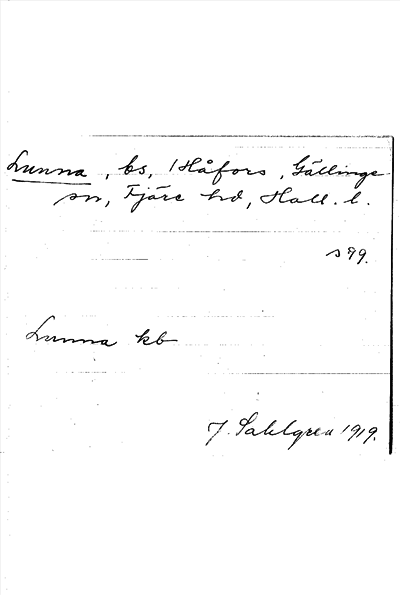 Lunna, bs, 1 Håfors, Gällinge
sn, Fjäre hd, Hall. l.
s 99.
Lunna kb
J. Sahlgren 1919.